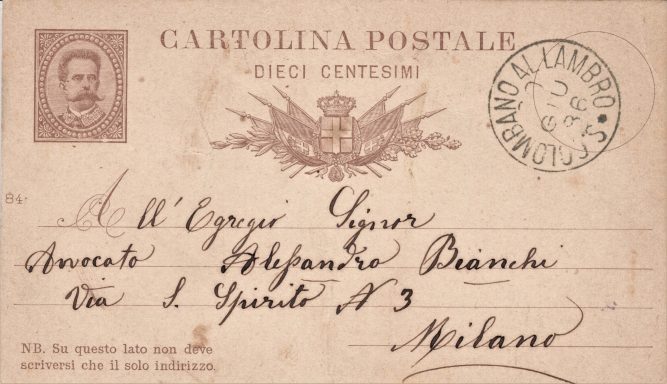 CARTOLINA POSTALE
DIECI CENTESIMI
S. COLOMBANO AL LAMBRO
7
GIU
86
84
All'Egregio Signor
Avvocato Alessandro Bianchi
Via S. Spirito N 3
Milano
NB. Su questo lato non deve
scriversi che il solo indirizzo.